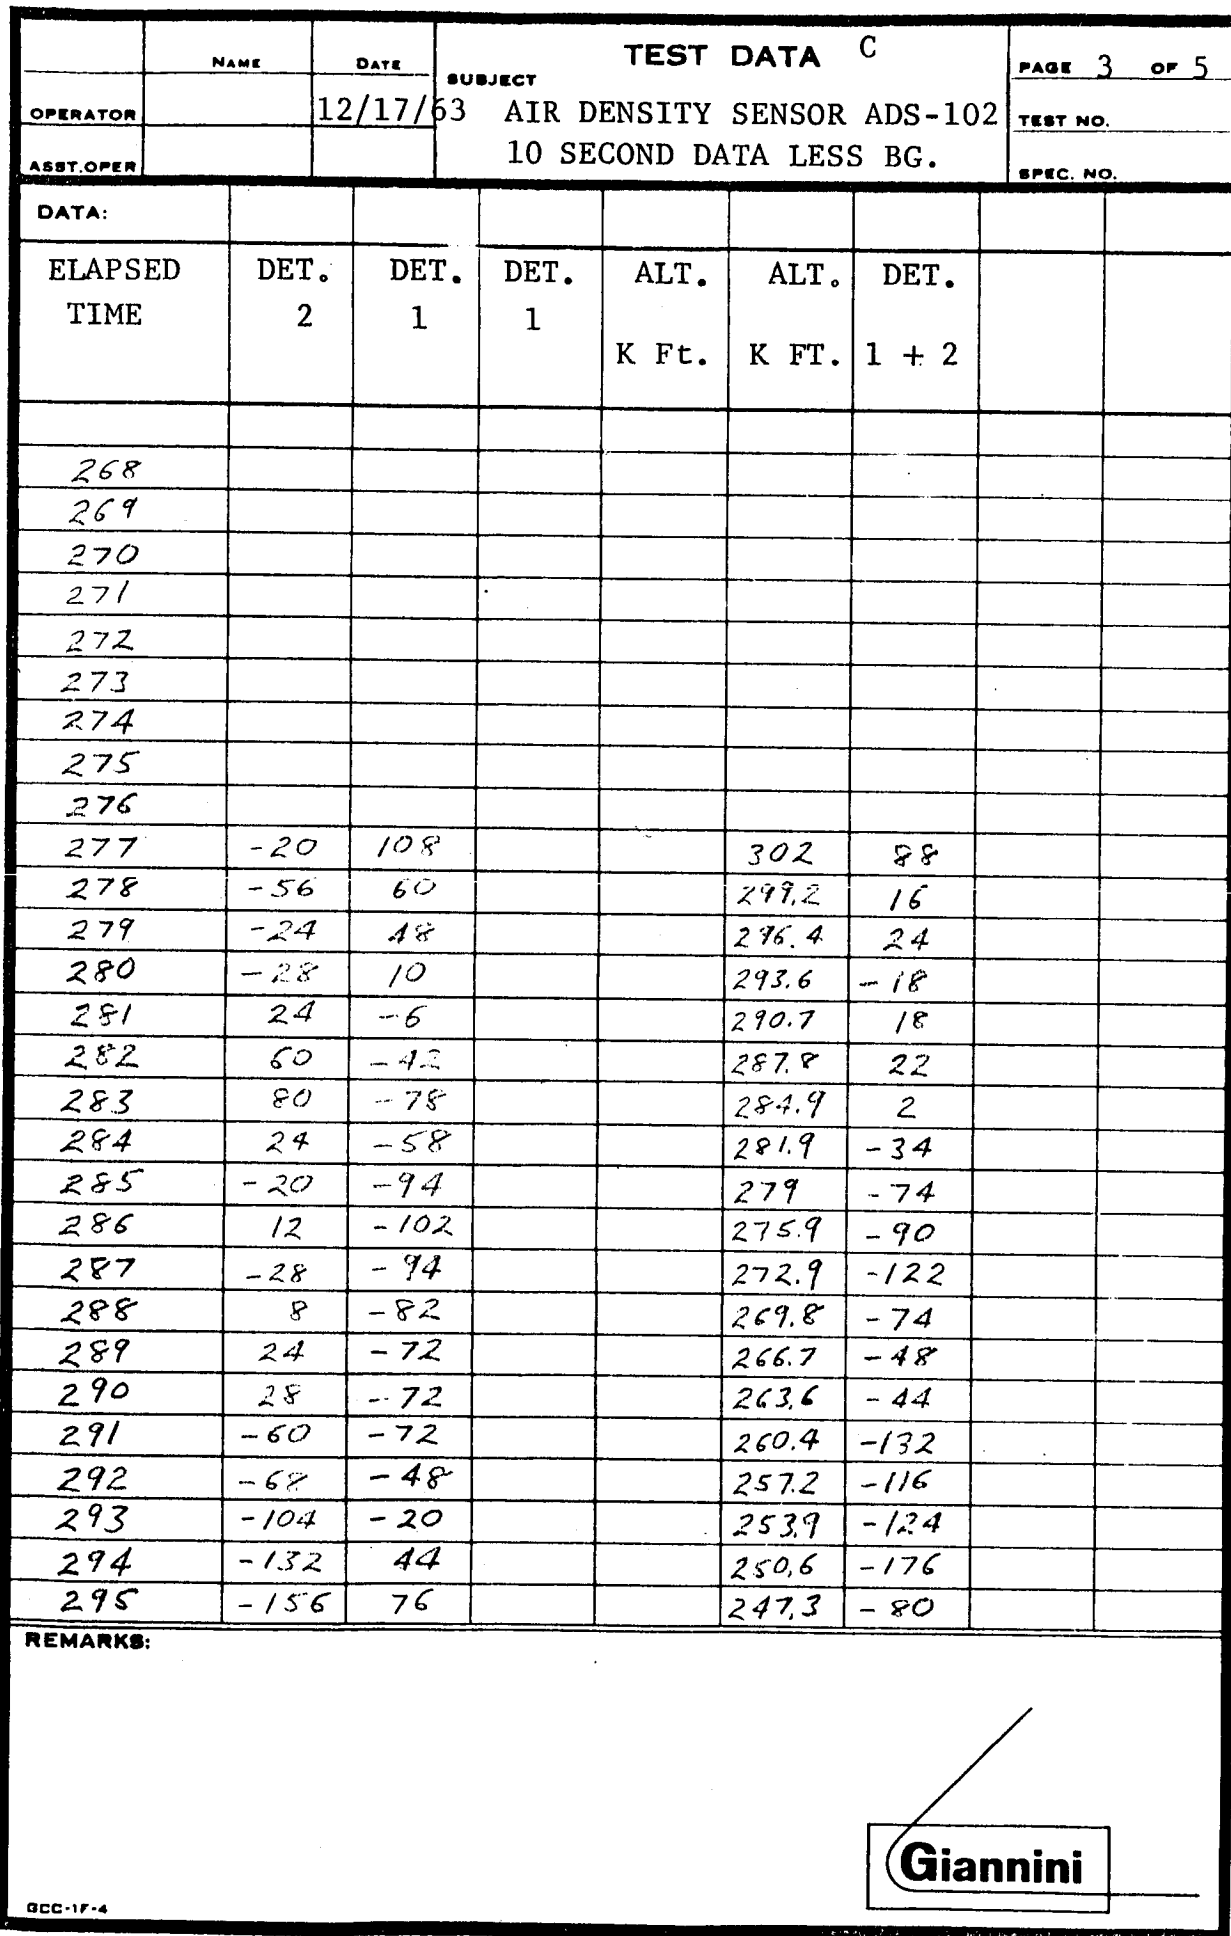 TEST DATA C
NAME DATE SUBJECT PAGE 3 OF 5
OPERATOR 12/17/63 AIR DENSITY SENSOR ADS-102 TEST NO.
ASST.OPER 10 SECOND DATA LESS BG. SPEC. NO.
DATA:
ELAPSED DET. DET. DET. ALT. ALT. DET.
TIME 2 1 1
K Ft. K FT. 1 + 2
268
269
270
271
272
273
274
275
276
277 -20 108 302 88
278 -56 60 299.2 16
279 -24 48 296.4 24
280 -28 10 293.6 -18
281 24 -6 290.7 18
282 60 -42 287.8 22
283 80 -78 284.9 2
284 24 -58 281.9 -34
285 -20 -94 279 -74
286 12 -102 275.9 -90
287 -28 -94 272.9 -122
288 8 -82 269.8 -74
289 24 -72 266.7 -48
290 28 -72 263.6 -44
291 -60 -72 260.4 -132
292 -68 -48 257.2 -116
293 -104 -20 253.9 -124
294 -132 44 250.6 -176
295 -156 76 247.3 -80
REMARKS:
Giannini
GCC-1F-4